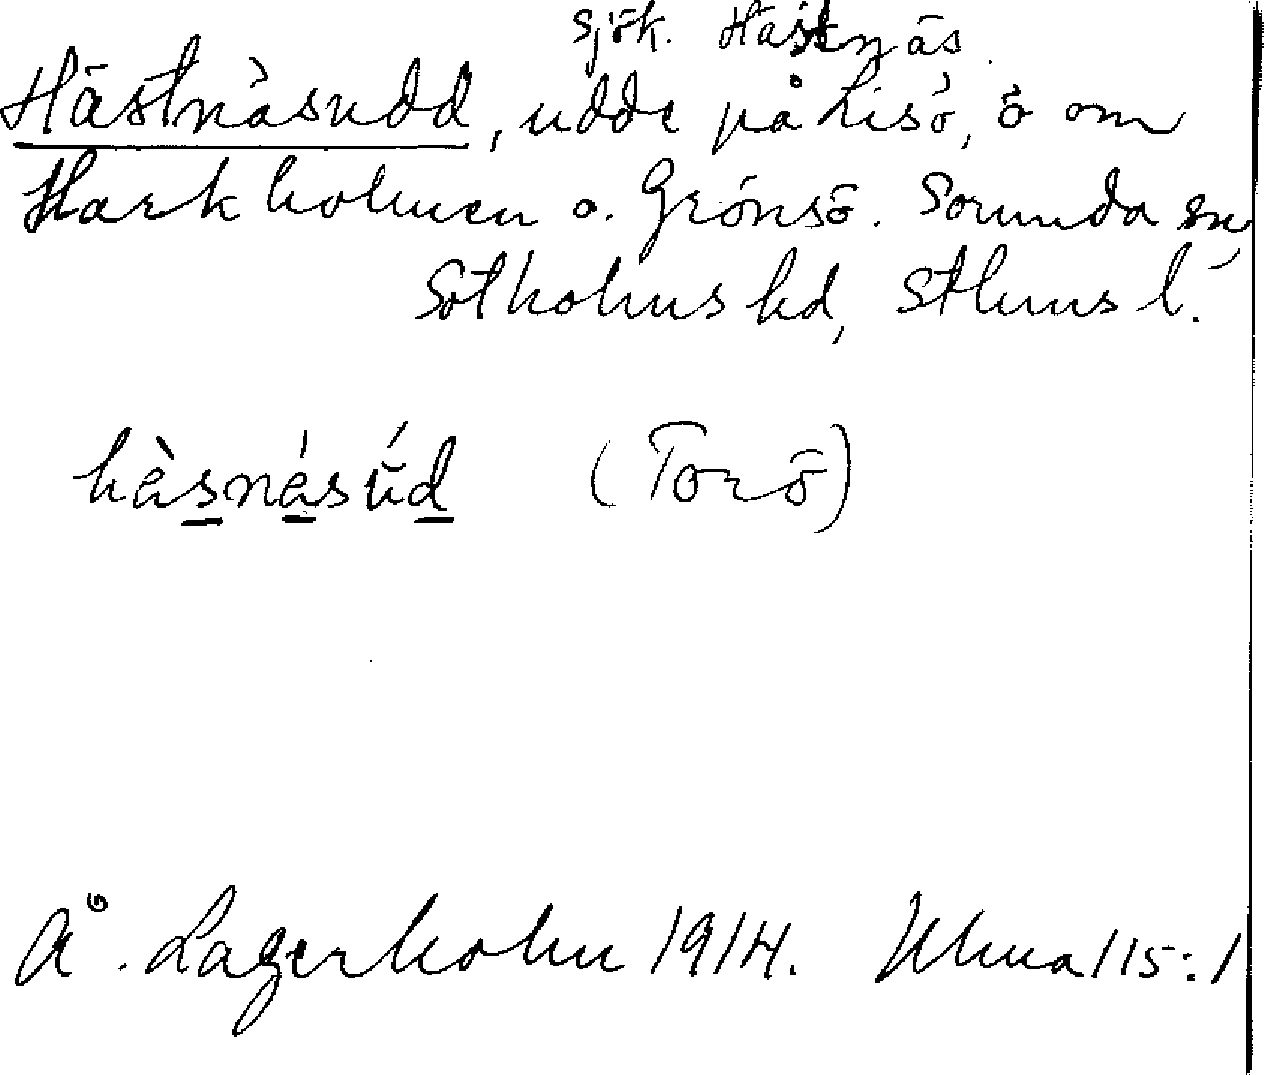 sjök. Hästnäs.
Hästnäsudd, udde på Lisö, ö om
Harkholmen o. Grönsö. Sorunda sn,
Sotholms hd, Sthlms l.
hä̀snä́sŭ́d (Torö)
Å. Lagerholm 1914. Ulma 115:1